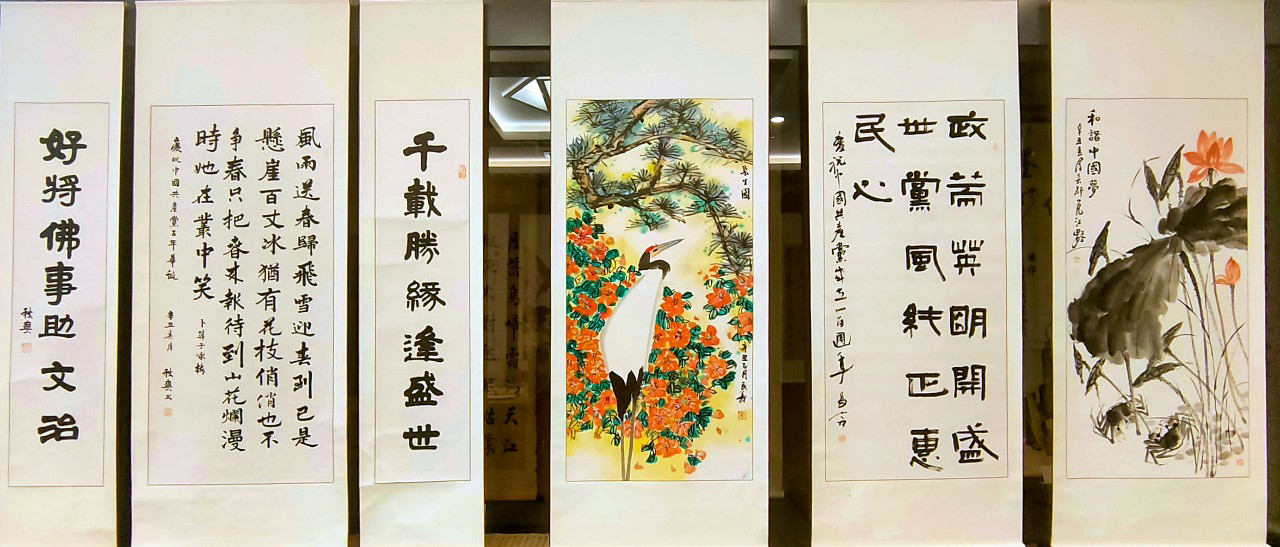 和諧中國夢
政策英明開盛
世黨風純正惠
民心
慶祝中國共產黨成立一百週年
生圖
千載勝緣逢盛世
風雨送春歸飛雪迎春到已是
懸崖百丈冰猶有花枝俏俏也不
爭春只把春來報待到山花爛漫
時她在叢中笑
卜算子咏梅
慶祝中國共產黨百年華誕
好將佛事助文治
月落烏啼霜滿天江